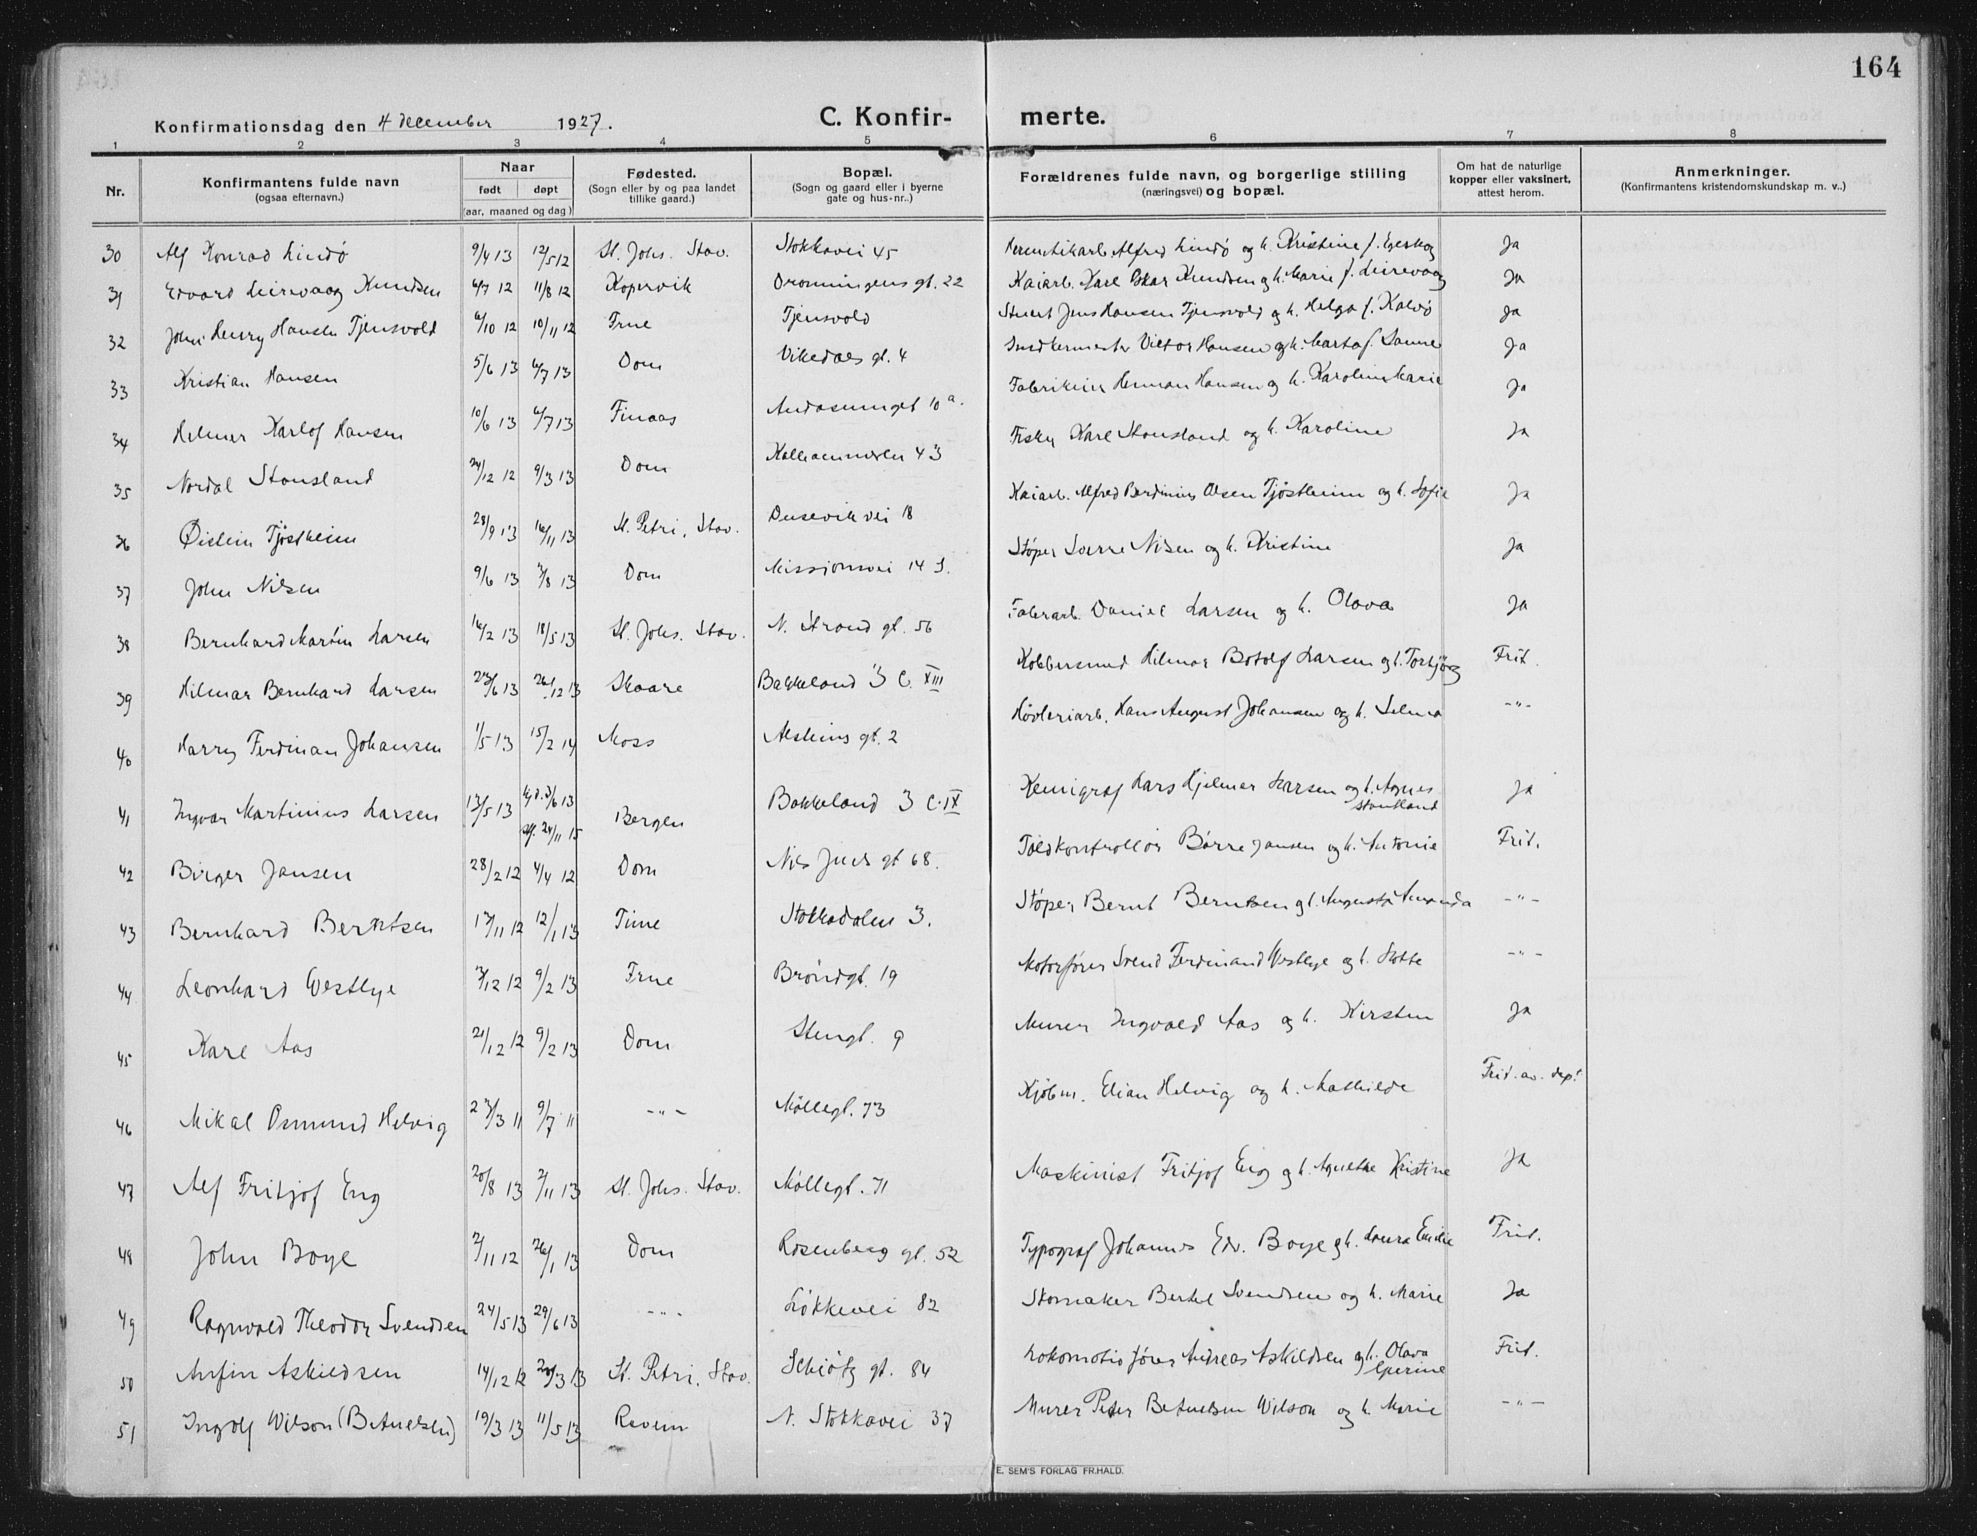 164
Konfirmationsdag den 4 december 1927.
C. Konfir- merte.
1 2 3 4 5 6 7 8
Nr.
Konfirmantens fulde navn
(ogsaa efternavn.)
Naar
født døpt
(aar, maaned og dag)
Fødested.
(Sogn eller by og paa landet
tillike gaard.)
Bopæl.
(Sogn og gaard eller i byerne
gate og hus-nr..)
Forældrenes fulde navn, og borgerlige stilling
(næringsvei) og bopæl.
Om hat de naturlige
kopper eller vaksinert,
attest herom.
Anmerkninger.
(Konfirmantens kristendomskundskap m. v..)
30 Alf Konrad Lindø 9/4 13 12/5 12 St. Johs. Stav. Stokkavei 45 Alfred Lindø og h. Kristine f. Ja
31 Edvard Leirevaag Knudsen 6/7 12 11/8 12 Kopervik Dronningens gt. 22 Kaiarb. Karl Oskar Knudsen og h. Marie f. Leirevaag Ja
32 John Henry Hansen Tjensvold 6/10 12 10/11 12 Frue Tjensvold Stuert Jens Hansen Tjensvold og h. Helga f. Kalvø Ja
33 Kristian Hansen 5/6 13 6/7 13 Dom Vikedals gt. 4 Snedkermester Viktor Hansen og h. Marta f. Sanne Ja
34 Helmer Karlof Hansen 10/6 13 6/7 13 Finaas 10 a. Herman Hansen og h. Karolin Marie Ja
35 Nordal Stousland 24/12 12 9/3 13 Dom Kalhammeren 43 Fisker Karl Stousland og h. Karoline Ja
36 Øistein Tjøstheim 28/9 13 16/11 13 St. Petri, Stav. Dusevik vei 18 Kaiarb. Alfred Berdinius Olsen Tjøstheim og h. Sofie Ja
37 John Nilsen 9/6 13 3/8 13 Dom Missionsvei 14 Støper Sverre Nilsen og h. Kristine Ja
38 Bernhard Martin Larsen 16/2 13 18/5 13 St. Johs. Stav. N. Strand gt. 56 Fabrarb. Daniel Larsen og h. Olava Ja
39 Hilmar Bernhard Larsen 23/6 13 26/12 13 Skaare Bakkeland 3 C. XIII Kobbersmed Hilmar Botolf Larsen og h. Torbjørg Frit.
40 Harry Ferdinan Johansen 1/5 13 15/2 14 Moss gt. 2 Høvleriarb. Hans August Johansen og h. Selma -"-
41 Ingvar Martinius Larsen 13/5 13 Hj.d. 3/6 13 Bergen Bakkeland 3 C. IX Kemigraf Lars Hjelmer Larsen og h. Agnes Ja
24/11 15
Stousland
42 Birger Jansen 28/2 12 4/4 12 Dom Nils Juels gt 68. Toldkontrollør Børre Jansen og h. Antonie Frit.
43 Bernhard Berntsen 13/11 12 12/1 13 Time Stokkadalen 3. Støper Bernt Berntsen og h. Augusta Amanda -"-
44 Leonhard Westbye 3/12 12 9/2 13 Frue Brøndgt. 19 Motorfører Svend Ferdinand Westbye og h. Lotte -"-
45 Karl Aas 21/12 12 9/2 13 Dom Stengt. 9 Murer Ingvald Aas og h. Kirsten Ja
46 Mikal Osmund Helvig 23/3 11 9/7 11 -"- Møllegt. 73 Kjøbm. Elian Helvig og h. Mathilde Frit. av. dept.
47 Alf Fritjof Eng 20/8 13 2/11 13 St. Johs. Stav. Møllegt. 71 Maskinist Fritjof Eng og h. Agnethe Kristine Ja
48 John Boye 2/11 12 26/1 13 Dom Rosenberg gt. 52 Typograf Johannes Edv. Boye og h. Laura Emilie Frit.
49 Ragnvald Theodor Svendsen 24/5 13 29/6 13 -"- Løkkevei 82 Skomaker Bertel Svendsen og h. Marie Ja
50 Arfin Askildsen 14/12 12 24/3 13 St. Petri, Stav. Schiøtz gt. 84 Lokomotivfører Andreas Askildsen og h. Olava Frit.
51 Ingolf Wilson (Betuelsen) 19/3 13 11/5 13 Revem N. Stokkavei 37 Murer Peter Betuelsen Wilson og h. Marie -"-
E. SEM'S FORLAG FR.HALD.